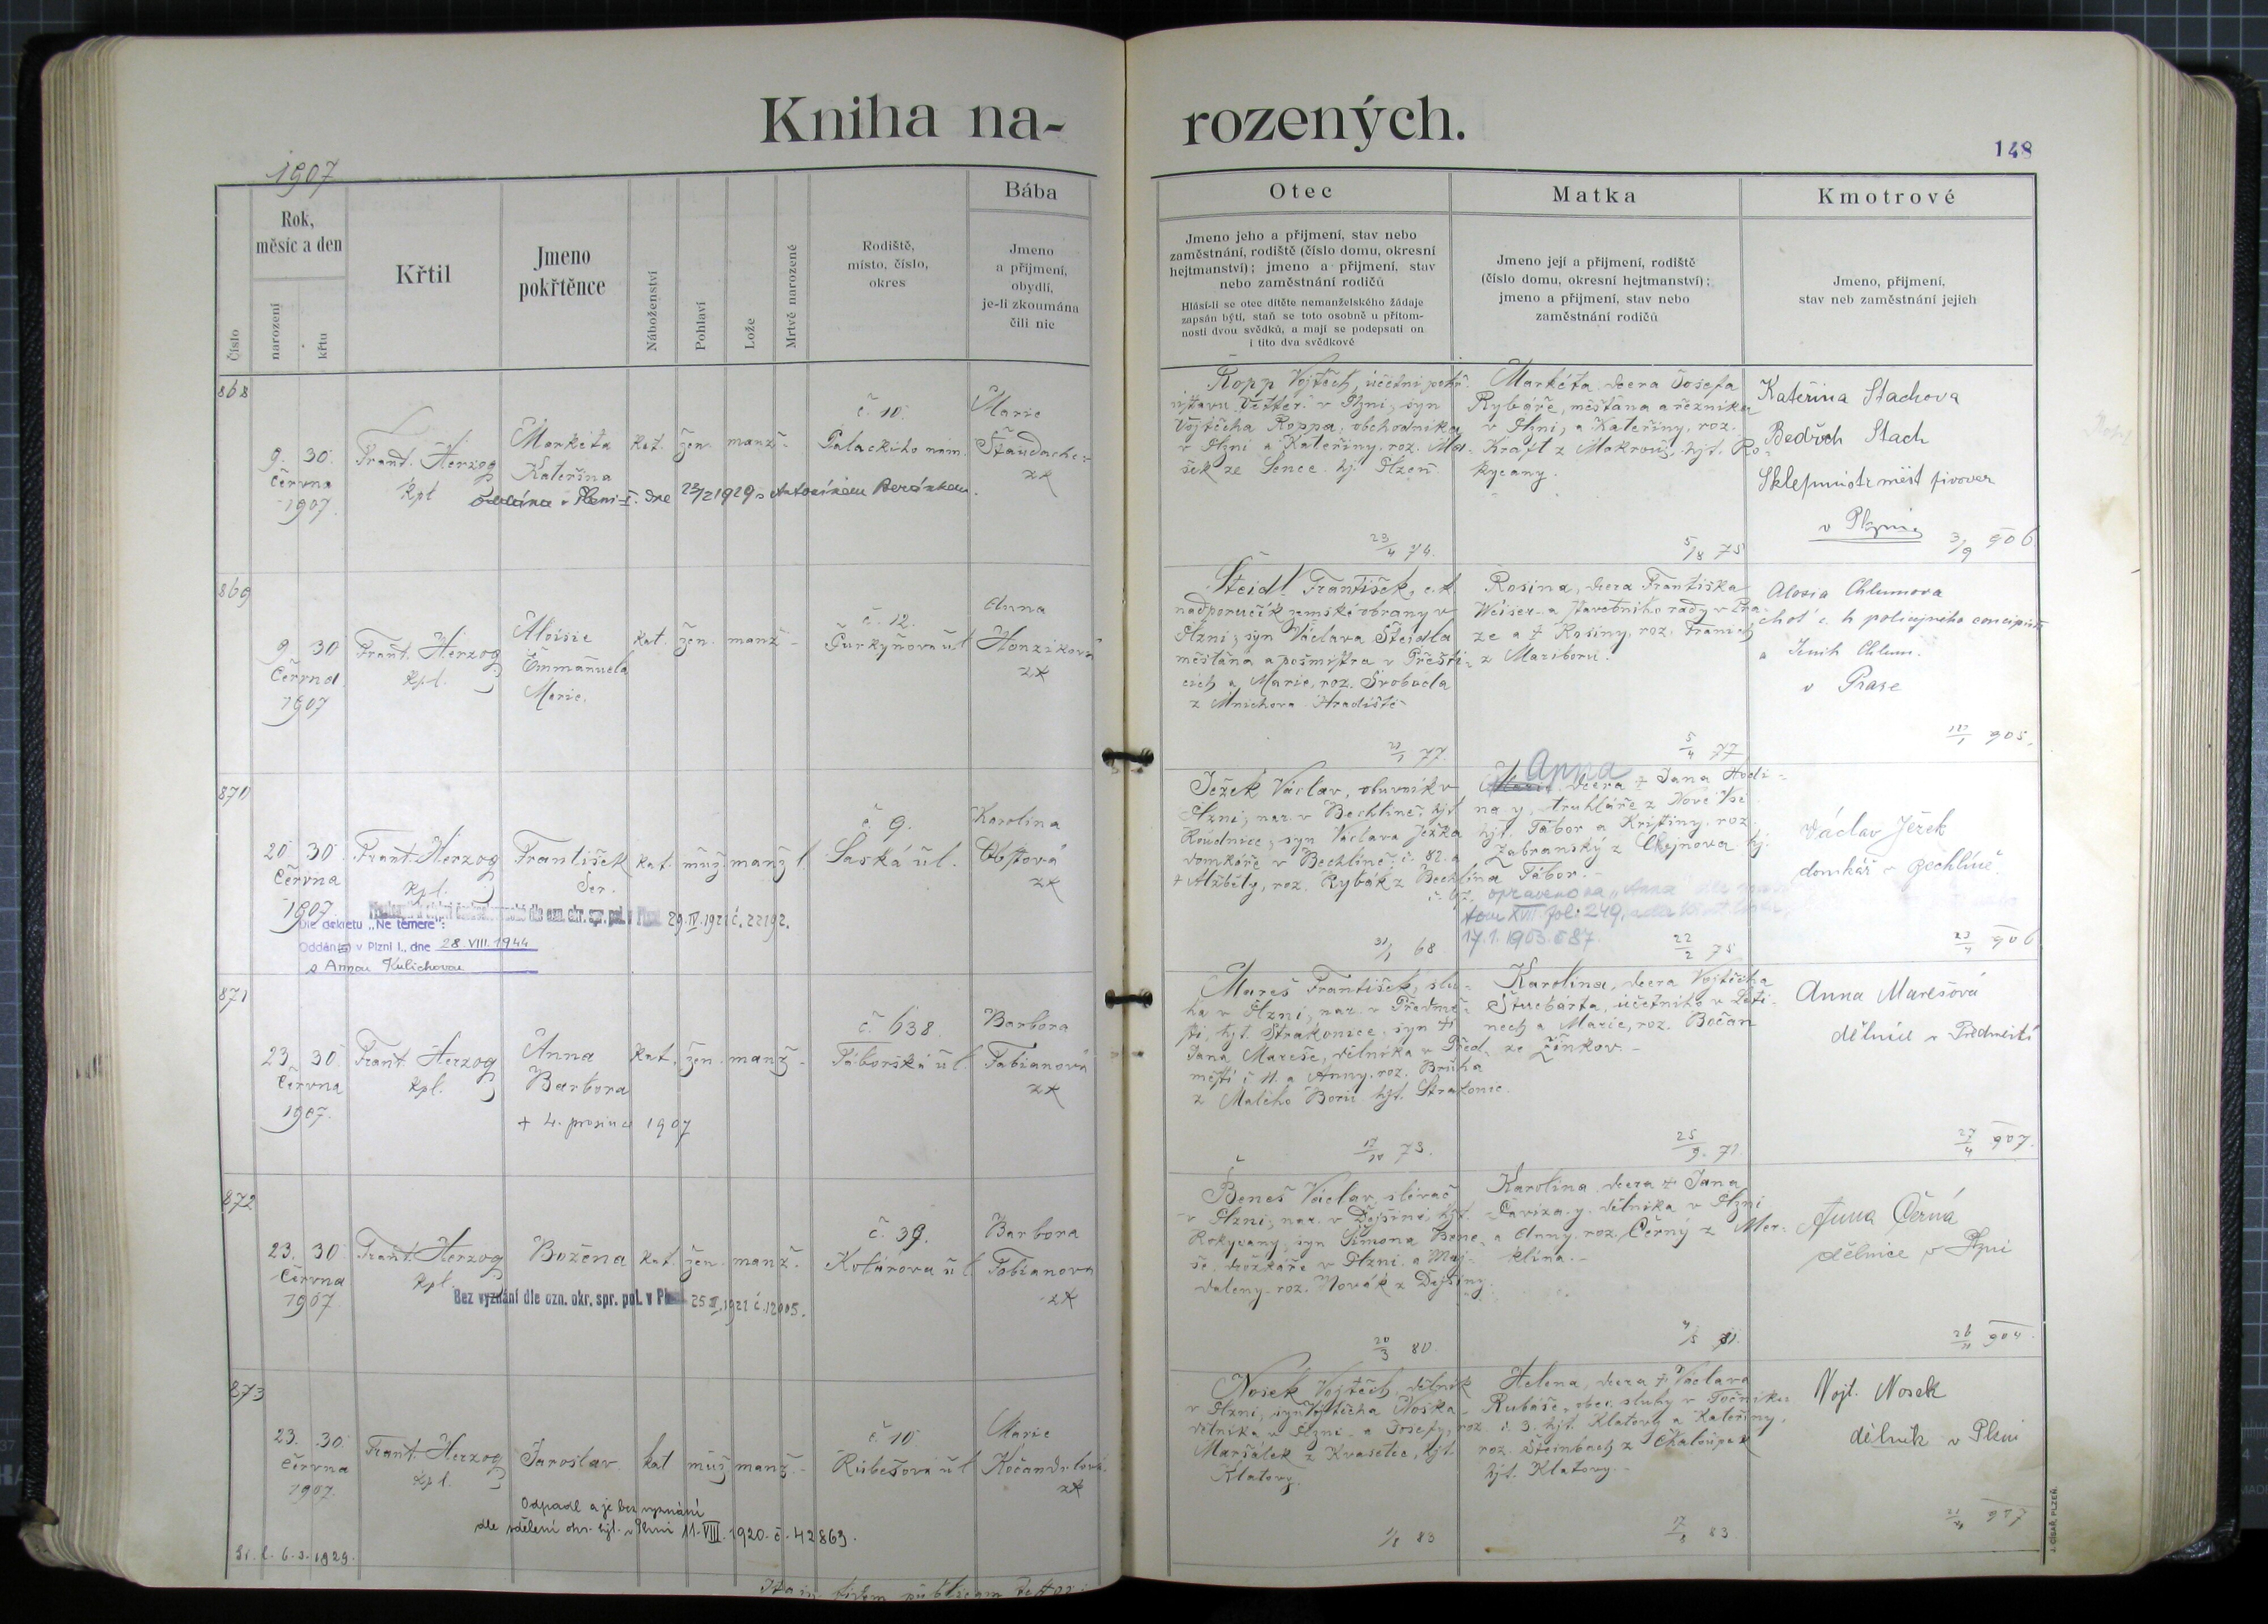 Kniha na-
rozených.
148
1907
Číslo
Rok,
měsíc a den
narození
křtu
Křtil
Jmeno
pokřtěnce
Náboženství
Pohlaví
Lože
Mrtvě narozené
Rodiště,
místo, číslo,
okres
Bába
Jmeno
a příjmení,
obydlí,
je-li zkoumána
čili nic
Otec
Jmeno jeho a příjmení, stav nebo
zaměstnání, rodiště (číslo domu, okresní
hejtmanství); jmeno a příjmení, stav
nebo zaměstnání rodičů
Hlásí-li se otec dítěte nemanželského žádaje
zapsán býti, staň se toto osobně u přítom-
nosti dvou svědků, a mají se podepsati on
i tito dva svědkové
Matka
Jmeno její a příjmení, rodiště
(číslo domu, okresní hejtmanství);
jmeno a příjmení, stav nebo
zaměstnání rodičů
Kmotrové
Jmeno, příjmení,
stav neb zaměstnání jejich
868
9. 30.
června
1907
Frant. Herzog
kpl
Markéta
Kateřina
kat. žen. manž.
č. 10.
Palackého nám.
Marie
Staudacher
zk
oddána v Plzni-I. dne 23/2 1929 s Antonínem Beránkem.
Ropp Vojtěch, účetní pohř.
ústavu Vetter v Plzni, syn
Vojtěcha Roppa, obchodníka
v Plzni a Kateřiny, roz. Ma-
šek ze Sence hj. Plzeň.
23/4 74.
Markéta dcera Josefa
Rybáře, měšťana a řezníka
v Plzni, a Kateřiny, roz.
Kraft z Mokrouš, hjt. Ro-
kycany.
5/8 75
Kateřina Stachova
Bedřich Stach
Sklepmistr měšt pivovar
v Plzni
3/9 906
869
9. 30
června
1907
Frant. Herzog
kpl.
Aloisie
Emmanuela
Marie.
kat. žen. manž.
č. 12.
Purkyňova ul
Anna
Honzíková
zk
Šteidl František, c.k.
nadporučík zemské obrany v
Plzni, syn Václava Šteidla
měšťana a pošmistra v Přešti-
cích a Marie, roz. Svoboda
z Mnichova Hradiště
77.
Rosina, dcera Františka
Weiser-a stavebního rady v Pra-
ze a † Rosiny, roz. Franich
z Mariboru.
5/4 77
Aloisia Chlumova
choť c. k policejního concipisty
a Jenik Chlum.
v Praze
905
870
20 30.
června
1907
Frant. Herzog
kpl.
František
Ser.
kat. muž. manž.
č. 9.
Saská ul.
Karolina
Obstová
zk
dle ozn. okr. spr. pol. v Plzni 29.IV.1921 č. 22192.
Dle dekretu „Ne temere":
Oddán(a) v Plzni I., dne 28. VIII. 1944
s Annou Kulichovou
Ježek Václav, obuvník v
Plzni, nar. v Bechlíně, hjt
Roudnice, syn Václava Ježka
domkáře v Bechlíně č. 82. a
† Alžběty, roz. Rybák z Bechlína
31/1 68
Anna
Marie dcera † Jana Hodi-
na-y, truhláře z Nové Vsi
hjt. Tábor a Kristiny, roz.
Zabranský z Chejnova hj.
Tábor.
opraveno na „Anna"
tom XVII fol: 249,
17.1.1963. č 87.
22/2 75
Václav Ježek
domkář v Bechlíně.
23/4 906
871
23. 30.
června
1907.
Frant Herzog
kpl.
Anna
Barbora
kat. žen. manž.
č. 638.
Táborská ul.
Barbora
Fabianová
zk
+ 4. prosince 1907
Mareš František, slu-
ha v Plzni, nar. v Předmě-
stí, hjt. Strakonice, syn †
Jana Mareše, dělníka v Před-
městí č 11. a Anny, roz. Brůha
z Malého Boru hjt. Strakonic.
17/10 73.
Karolina, dcera Vojtěcha
Štucbárta, účetního v Leti-
nech a Marie, roz. Bočan
ze Žinkov. -
25/9. 71.
Anna Marešová
dělnice v Předměstí
27/4 907.
872
23. 30.
června
1907
Frant. Herzog
kpl.
Božena
kat. žen. manž.
č. 39.
Kolárova ul
Barbora
Fabianová
zk
Bez vyznání dle ozn. okr. spr. pol. v Plzni 25.II.1921 č. 12005.
Beneš Václav, slévač
v Plzni, nar. v Dejšině, hjt.
Rokycany, syn Šimona Bene-
še, drožkáře v Plzni a Maj-
daleny, roz. Novák z Dejšiny.
20/3 80.
Karolina dcera † Jana
Pavíza-y, dělníka v Plzni
a Anny, roz. Černý z Mer-
klína. -
Anna Černá
dělnice v Plzni
26/11 904.
873
23. 30.
června
1907.
Frant. Herzog
kpl.
Jaroslav
kat muž manž.
č. 10.
Rubešova ul
Marie
Kočandrlová
zk
Odpadl a je bez vyznání
dle sdělení okr. hejt. v Plzni 11.VIII.1920. č. 42863.
Nosek Vojtěch, dělník
v Plzni, syn Vojtěcha Noska
dělníka v Plzni a Josefy, roz
Maršálek z Kvasetic, hjt.
Klatovy.
1/8 83
Helena, dcera † Václava
Rubáše, obec. sluhy v Točníku
č. 3. hjt. Klatovy a Kateřiny,
roz. Šteinbach z Chaloupek
hjt. Klatovy. -
83
Vojt. Nosek
dělník v Plzni
907
6.3.1929.
J. CÍSAŘ, PLZEŇ.